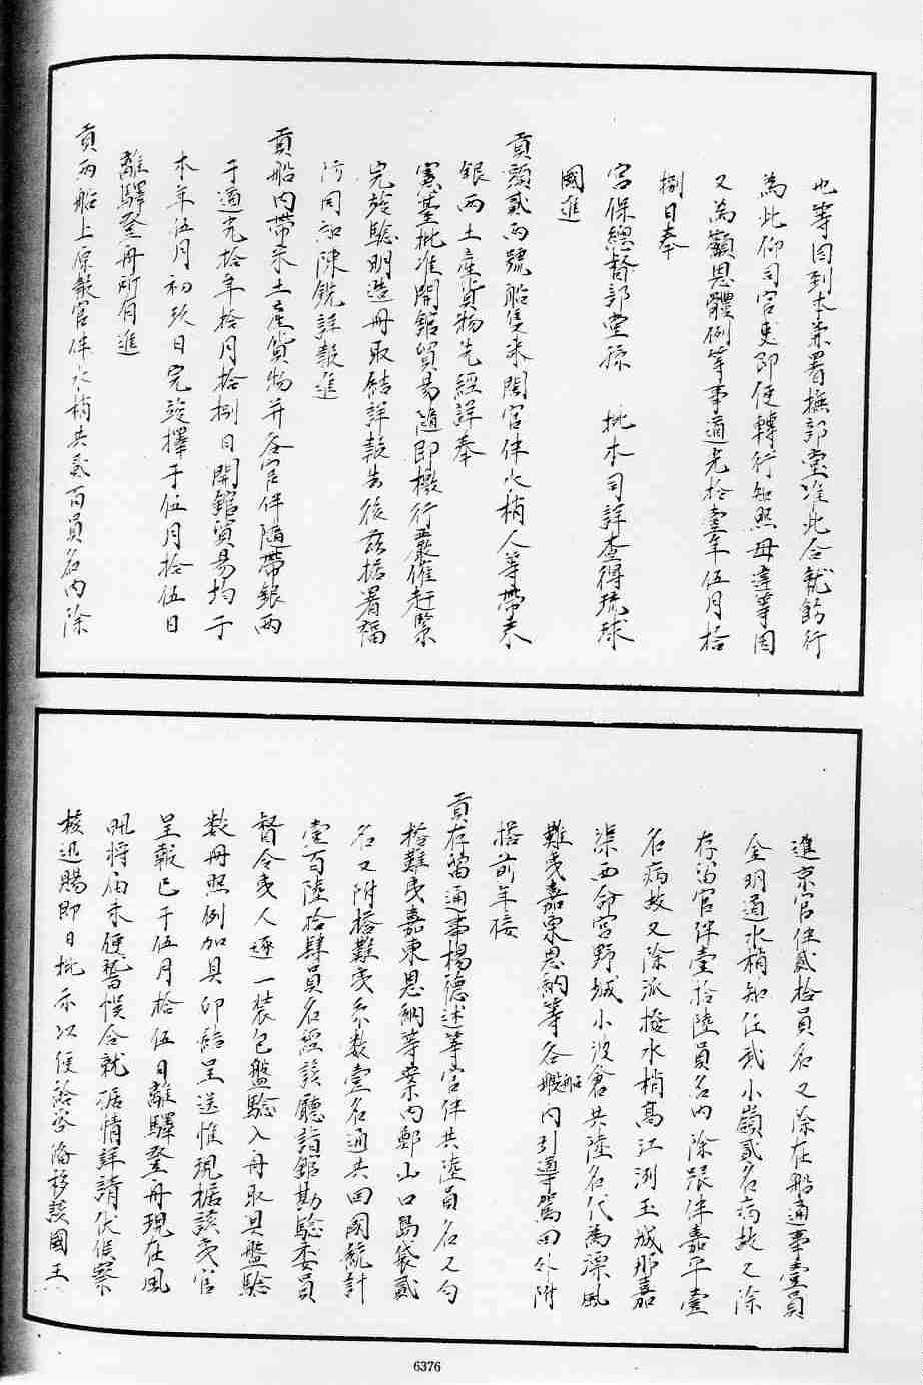 也等因到本兼署撫部堂准此合就飭行
為此仰司官吏即便轉行知照毋違等因
又為籲恩體例等事道光拾壹年伍月拾
捌日奉
宮保總督部堂孫　批本司詳查得琉球
國進
貢頭貳兩號船隻來閩官伴水梢人等帶來
銀兩土產貨物先經詳奉
憲臺批准開館貿易隨即檄行嚴催赶緊
完竣驗明造冊取結詳報去後茲據署福
防同知陳銑詳報進
貢船內帶來土產貨物并各官伴隨帶銀兩
于道光拾年拾月拾捌日開館貿易均于
本年伍月初玖日完竣擇于伍月拾伍日
離驛登舟所有進
貢兩船上原報官伴水梢共貳百員名內除
進京官伴貳拾員名又除在船通事壹員
金明通水梢知任武小嶺貳名病故又除
存留官伴壹拾陸員名內除跟伴嘉平壹
名病故又除派撥水梢高江洲玉城那嘉
渠西命宮野城小波倉共陸名代為漂風
難夷嘉東恩納等各船內引導駕回外附
搭前年接
貢存留通事楊德述等官伴共陸員名又勻
搭難夷嘉東恩納等案內鄭山口島袋貳
名又附搭難夷系數壹名通共回國統計
壹百陸拾肆員名經該廳詣館勘驗委員
督令夷人逐一裝包盤驗入舟取具盤驗
數冊照例加具印結呈送惟現據該夷官
呈報已于伍月拾伍日離驛登舟現在風
帆將屆未便暫悞合就據情詳請伏候察
核迅賜即日批示以便給咨俻移該國王
6376